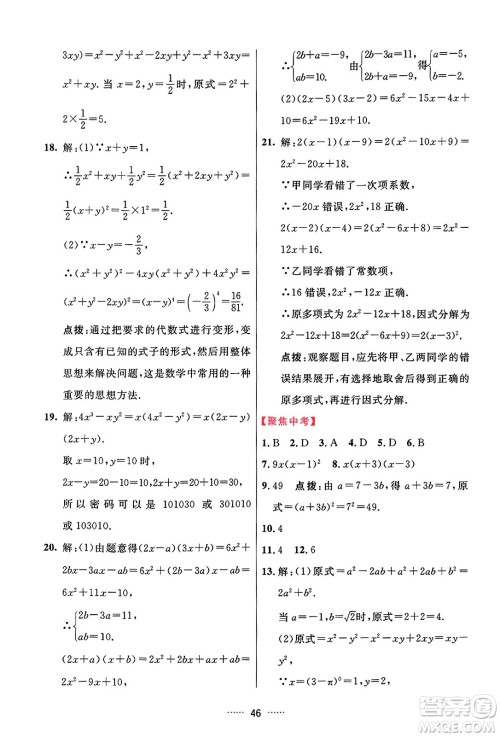 3xy)=x²-y²+x²-xy+y²+3xy=2x²
+xy. 当 x=2, y=1/2时, 原式=2²+
2×1/2=5.
18. 解:(1)∵x+y=1,
∴1/2x²+xy+1/2y²=1/2(x²+2xy+y²)=
1/2(x+y)²=1/2×1²=1/2.
(2)∵x-y=-2/3,
∴(x²+y²)²-4xy(x²+y²)+4x²y²=
(x²+y²-2xy)²=(x-y)⁴=(-2/3)⁴=16/81.
点拨:通过把要求的代数式进行变形,变
成关于已知的式子的形式,然后用整体
思想来解决问题,这是数学中常用的一种
重要的思想方法.
19. 解:4x³-xy²=x(4x²-y²)=x(2x+
y)(2x-y).
取 x=10,y=10,
2x-y=20-10=10,2x+y=20+10=30,
所以密码可以 101030 或 301010 或
103010.
20. 解:(1)由题意得(2x-a)(3x+b)=6x²+
2bx-3ax-ab=6x²+(2b-3a)x-ab=
6x²+11x-10.
∴{2b-3a=11,
ab=10.
(2x+a)(x+b)=2x²+2bx+ax+ab=
2x²+(2b+a)x+ab=2x²-9x+10,
∴{2b+a=-9, 由{2b-3a=11, 得{a=-5,
ab=10. 2b+a=-9, b=-2.
(2)(2x-5)(3x-2)=6x²-19x+10.
21. 解:∵2(x-1)(x-9)=2(x²-10x+9)=
2x²-20x+18.
∵甲同学看错了一次项系数,
∴-20x 错误,2x²,18 正确.
2(x-2)(x-4)=2(x²-6x+8)=2x²-
12x+16.
∵乙同学看错了常数项,
∴16 错误,2x²,-12x 正确,
∴原多项式为 2x²-12x+18=2(x²-
6x+9)=2(x-3)².
点拨:观察题目,应先将甲、乙两同学的错
误结果展开,有选择地取舍后得出正确的
原多项式,再进行因式分解.
【聚焦中考】
1. B 2. D 3. A 4. D 5. D 6. B
7. 9x(x-1)² 8. x(x+3)(x-3)
9. 49 点拨:由 a=7-3b,得 a+3b=7,
∴原式=(a+3b)²=7²=49.
10. 4
11. 4 12. 6
13. 解:(1)原式=a²-b²+a²+2ab+b²-
2ab=2a².
当 a=-√2时,原式=2×(-√2)²=4.
(2)原式=x²-y²-2x²+4y²=-x²+3y²,
∵x=(3-π)⁰=1,y=2,
46